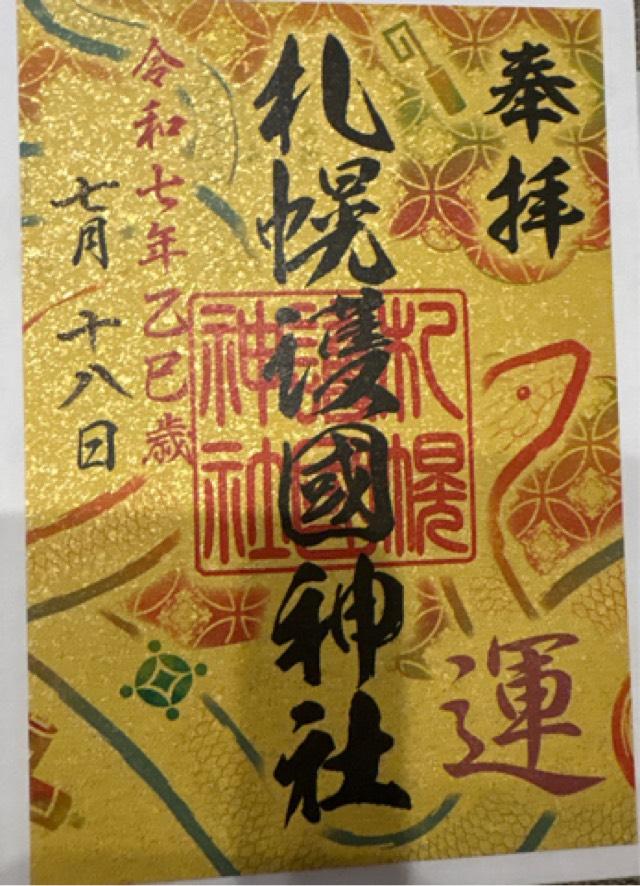 奉拝
運
札幌護國神社
札幌護國神社
令和七年乙巳歳
七月十八日